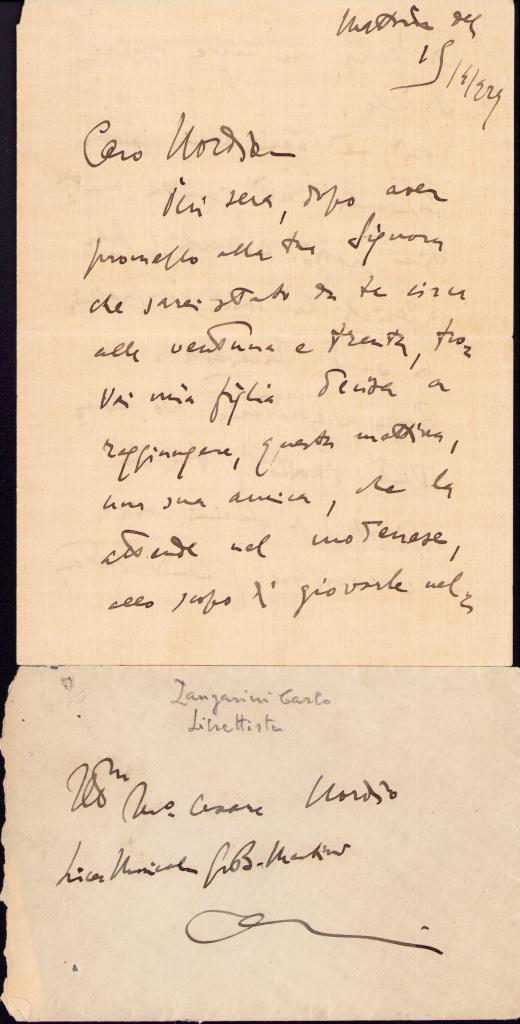 Mattina del
15/4/929
Caro Nordio
Ieri sera, dopo aver
promesso alla tua Signora
che sarei stato da te circa
alle ventuna e trenta, tro=
vai mia figlia decisa a
raggiungere, questa mattina,
una sua amica, che la
attende nel modenese,
allo scopo di giovarle nel=
Zangarini Carlo
Librettista
Ill.mo M.o Cesare Nordio
Liceo Musicale G.B. Martini